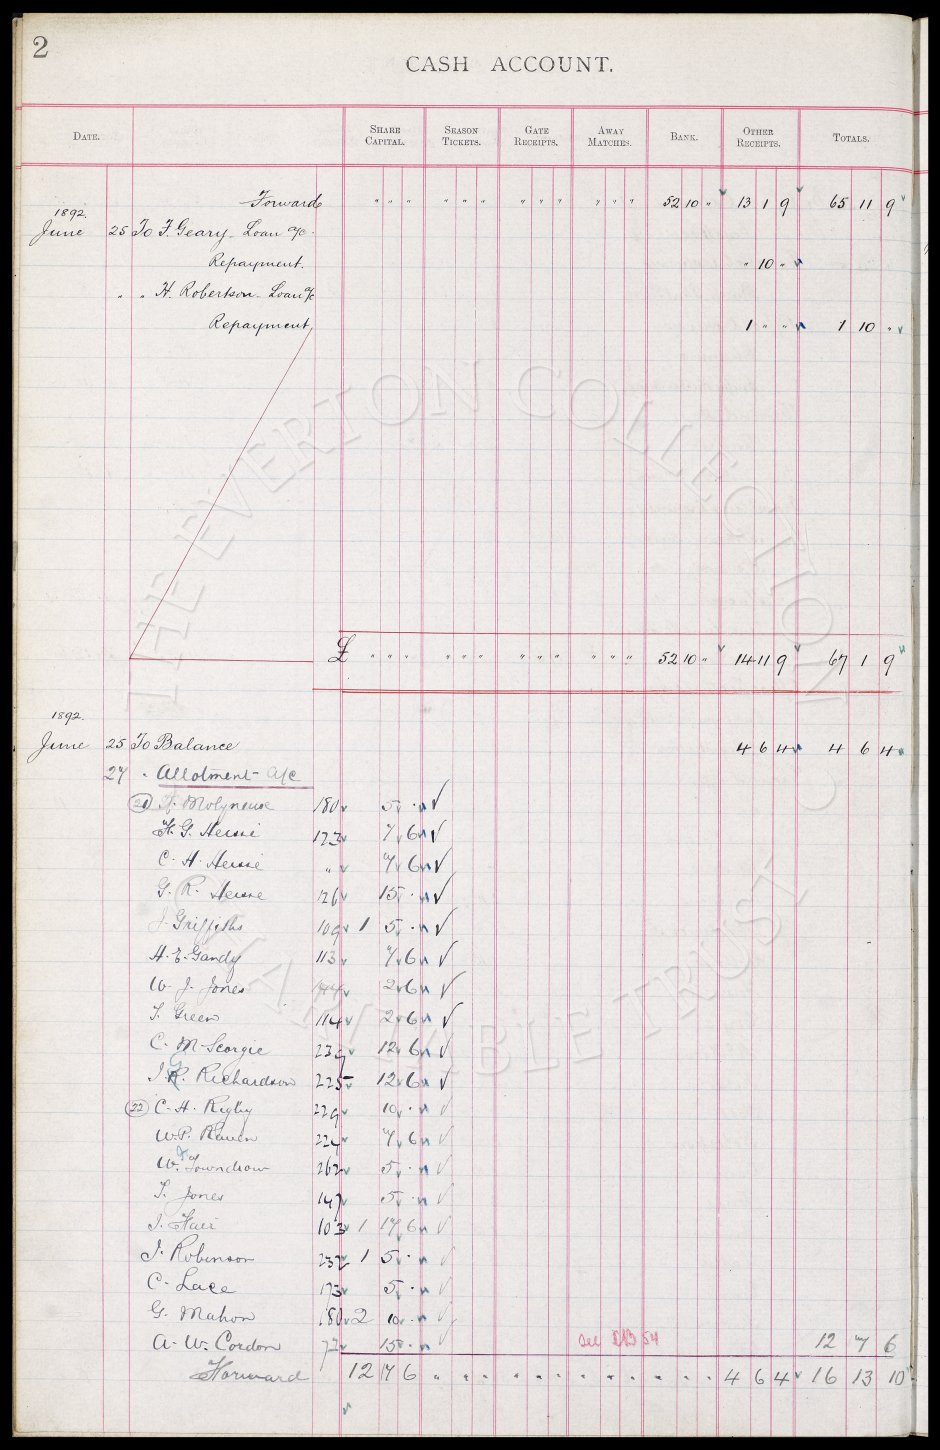 2
CASH ACCOUNT.
DATE. SHARE CAPITAL. SEASON TICKETS. GATE RECEIPTS. AWAY MATCHES. BANK. OTHER RECEIPTS. TOTALS.
Forward " " " " " " " " " " " " 52 10 " 13 1 9 65 11 9
1892.
June 25 To F. Geary. Loan a/c.
Repayment. " 10 "
" " H. Robertson. Loan a/c
Repayment. 1 " " 1 10 "
£ " " " " " " " " " " " " 52 10 " 14 11 9 67 1 9
1892.
June 25 To Balance 4 6 4 4 6 4
27 " Allotment a/c
(21) Molyneux 180 5 .
H. G. Hewse 173 7 6
C. H. Hewse " 7 6
G. R. Hewse 126 15 .
J. Griffiths 109 1 5 .
H. E. Gandy 113 7 6
W. J. Jones 2 6
T. Green 114 2 6
C. McScorgie 239 12 6
J. Richardson 225 12 6
(22) C. H. Rigby 229 10 .
W. P. Raven 224 7 6
W. Towndrow 262 5 .
T. Jones 147 5 .
J. Hair 103 1 17 6
J. Robinson 232 1 5 .
C. Lace 173 5 .
G. Mahon 180 2 10 .
A. W. Cordon 72 15 . See 54 12 7 6
Forward 12 17 6 " " " " " " " " " " " " 4 6 4 16 13 10
THE EVERTON COLLECTION CHARITABLE TRUST